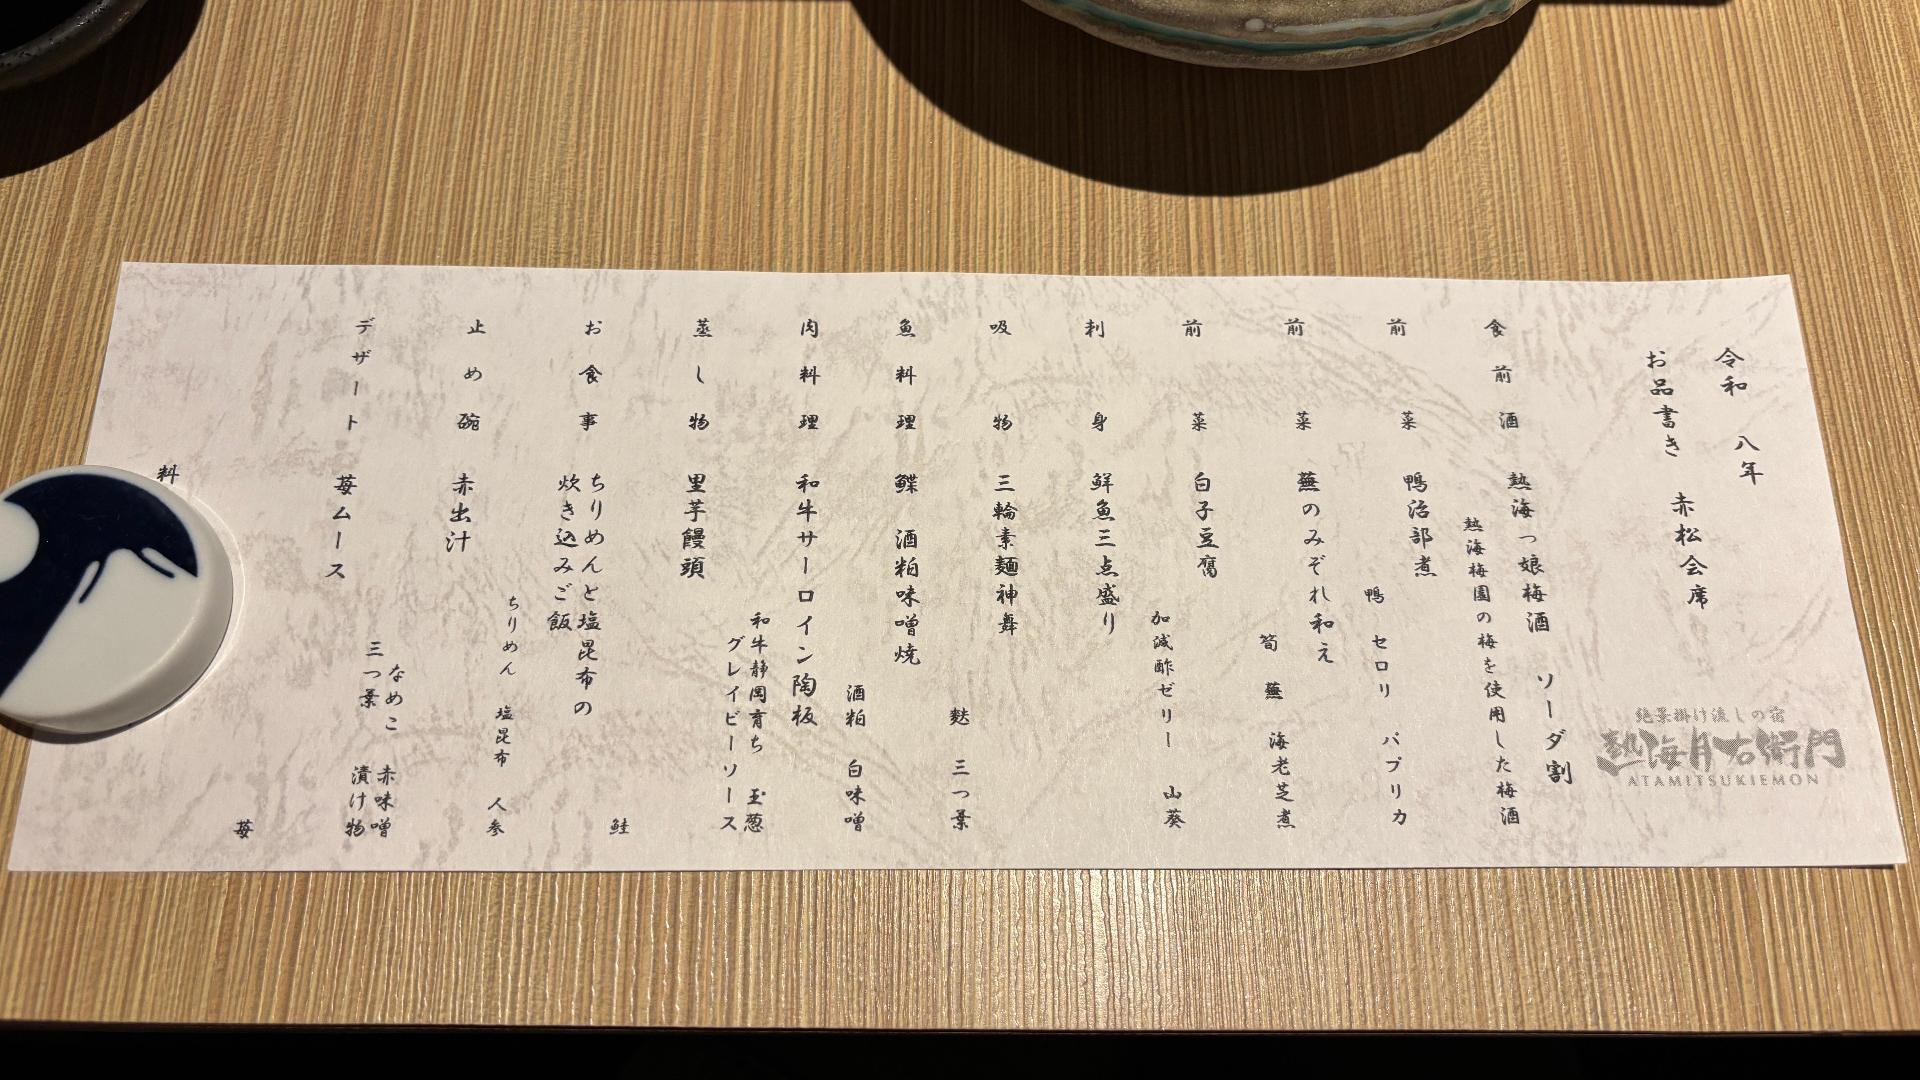 令和 八年
お品書き 赤松会席
絶景掛け流しの宿
熱海月右衛門
ATAMITSUKIEMON
食前酒 熱海っ娘梅酒 ソーダ割
熱海梅園の梅を使用した梅酒
前菜 鴨治部煮
鴨 セロリ パプリカ
前菜 蕪のみぞれ和え
筍 蕪 海老芝煮
前菜 白子豆腐
加減酢ゼリー 山葵
刺身 鮮魚三点盛り
吸物 三輪素麺神舞
麩 三つ葉
魚料理 鰈 酒粕味噌焼
酒粕 白味噌
肉料理 和牛サーロイン陶板
和牛静岡育ち 玉葱
グレイビーソース
蒸し物 里芋饅頭
鮭
お食事 ちりめんと塩昆布の
炊き込みご飯
ちりめん 塩昆布 人参
止め碗 赤出汁
なめこ 赤味噌
三つ葉 漬け物
デザート 苺ムース
苺
料